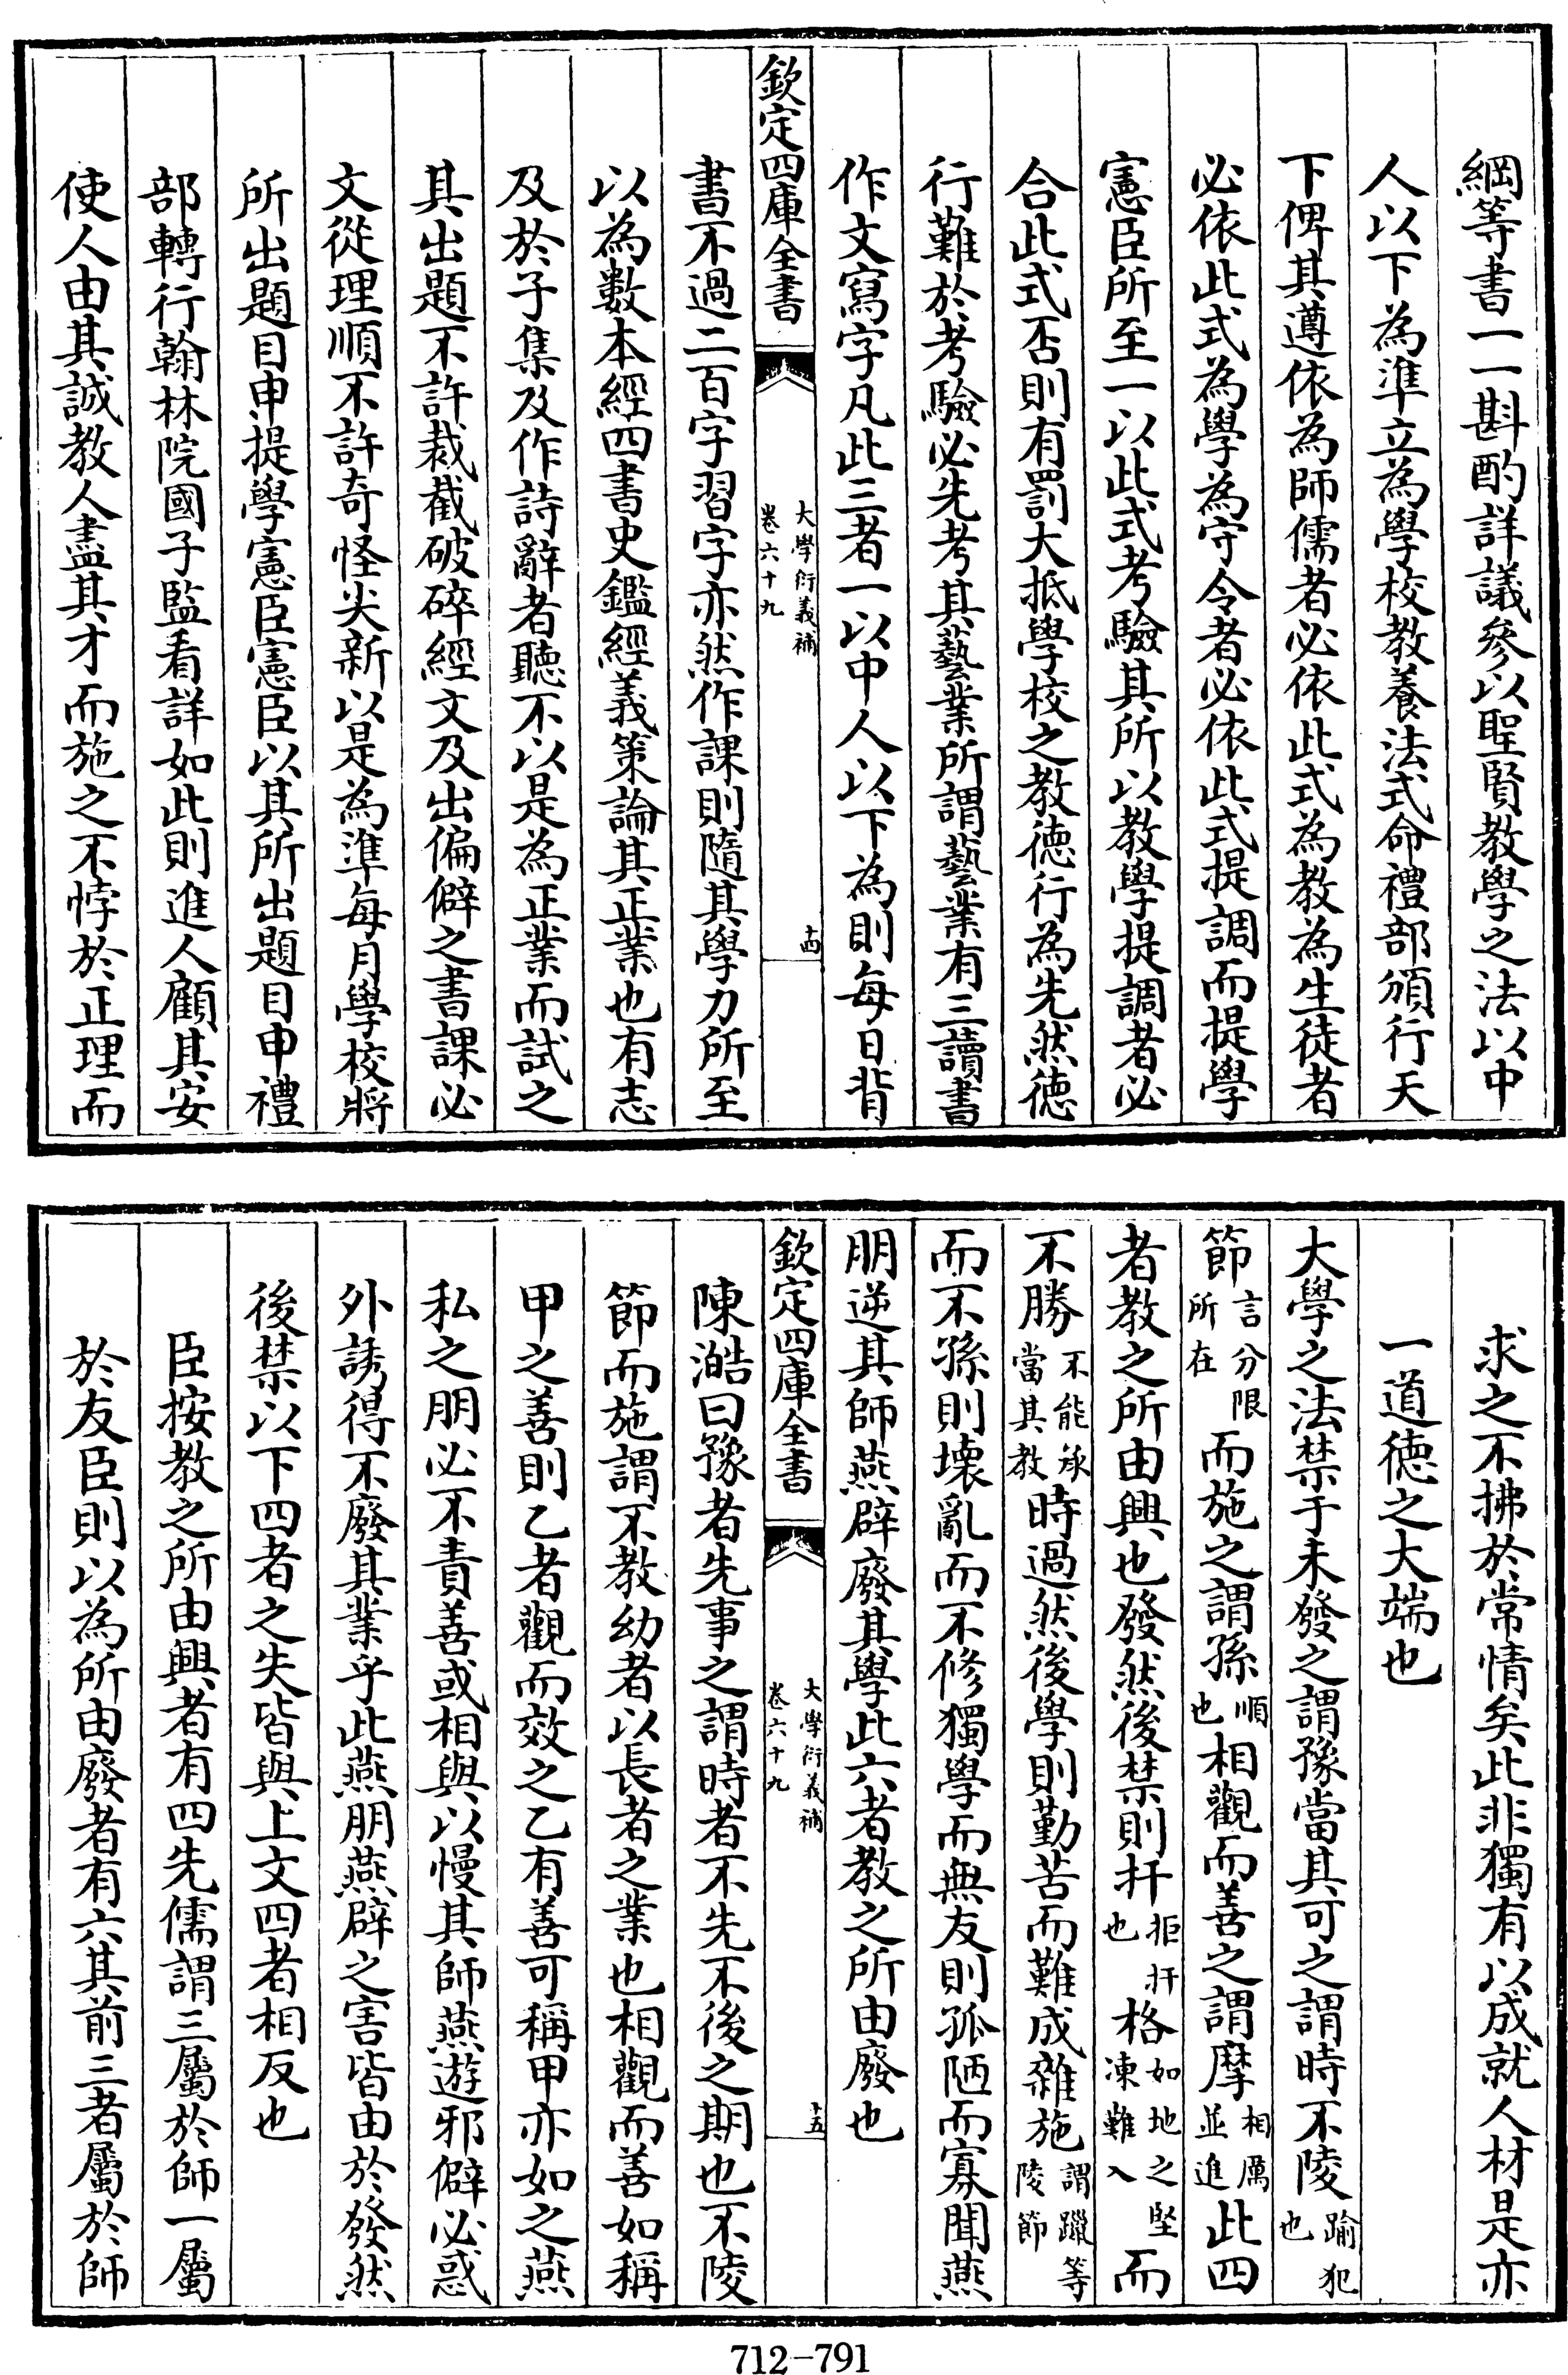 綱等書一一斟酌詳議參以聖賢教學之法以中
人以下為準立為學校教養法式命禮部頒行天
下俾其遵依為師儒者必依此式為教為生徒者
必依此式為學為守令者必依此式提調而提學
憲臣所至一以此式考驗其所以教學提調者必
合此式否則有罰大抵學校之教德行為先然德
行難於考驗必先考其藝業所謂藝業有三讀書
作文寫字凡此三者一以中人以下為則每日背
欽定四庫全書
大學衍義補
卷六十九
十四
書不過二百字習字亦然作課則隨其學力所至
以為數本經四書史鑑經義策論其正業也有志
及於子集及作詩辭者聽不以是為正業而試之
其出題不許裁截破碎經文及出偏僻之書課必
文從理順不許奇怪尖新以是為準每月學校將
所出題目申提學憲臣憲臣以其所出題目申禮
部轉行翰林院國子監看詳如此則進人顧其安
使人由其誠教人盡其才而施之不悖於正理而
求之不拂於常情矣此非獨有以成就人材是亦
一道德之大端也
大學之法禁于未發之謂豫當其可之謂時不陵踰犯也
節言分限所在而施之謂孫順也相觀而善之謂摩相厲並進此四
者教之所由興也發然後禁則扞拒扞也格如地之堅凍難入而
不勝不能承當其教時過然後學則勤苦而難成雜施謂躐等陵節
而不孫則壞亂而不修獨學而無友則孤陋而寡聞燕
朋逆其師燕辟廢其學此六者教之所由廢也
欽定四庫全書
大學衍義補
卷六十九
十五
陳澔曰豫者先事之謂時者不先不後之期也不陵
節而施謂不教幼者以長者之業也相觀而善如稱
甲之善則乙者觀而效之乙有善可稱甲亦如之燕
私之朋必不責善或相與以慢其師燕遊邪僻必惑
外誘得不廢其業乎此燕朋燕辟之害皆由於發然
後禁以下四者之失皆與上文四者相反也
臣按教之所由興者有四先儒謂三屬於師一屬
於友臣則以為所由廢者有六其前三者屬於師
712-791